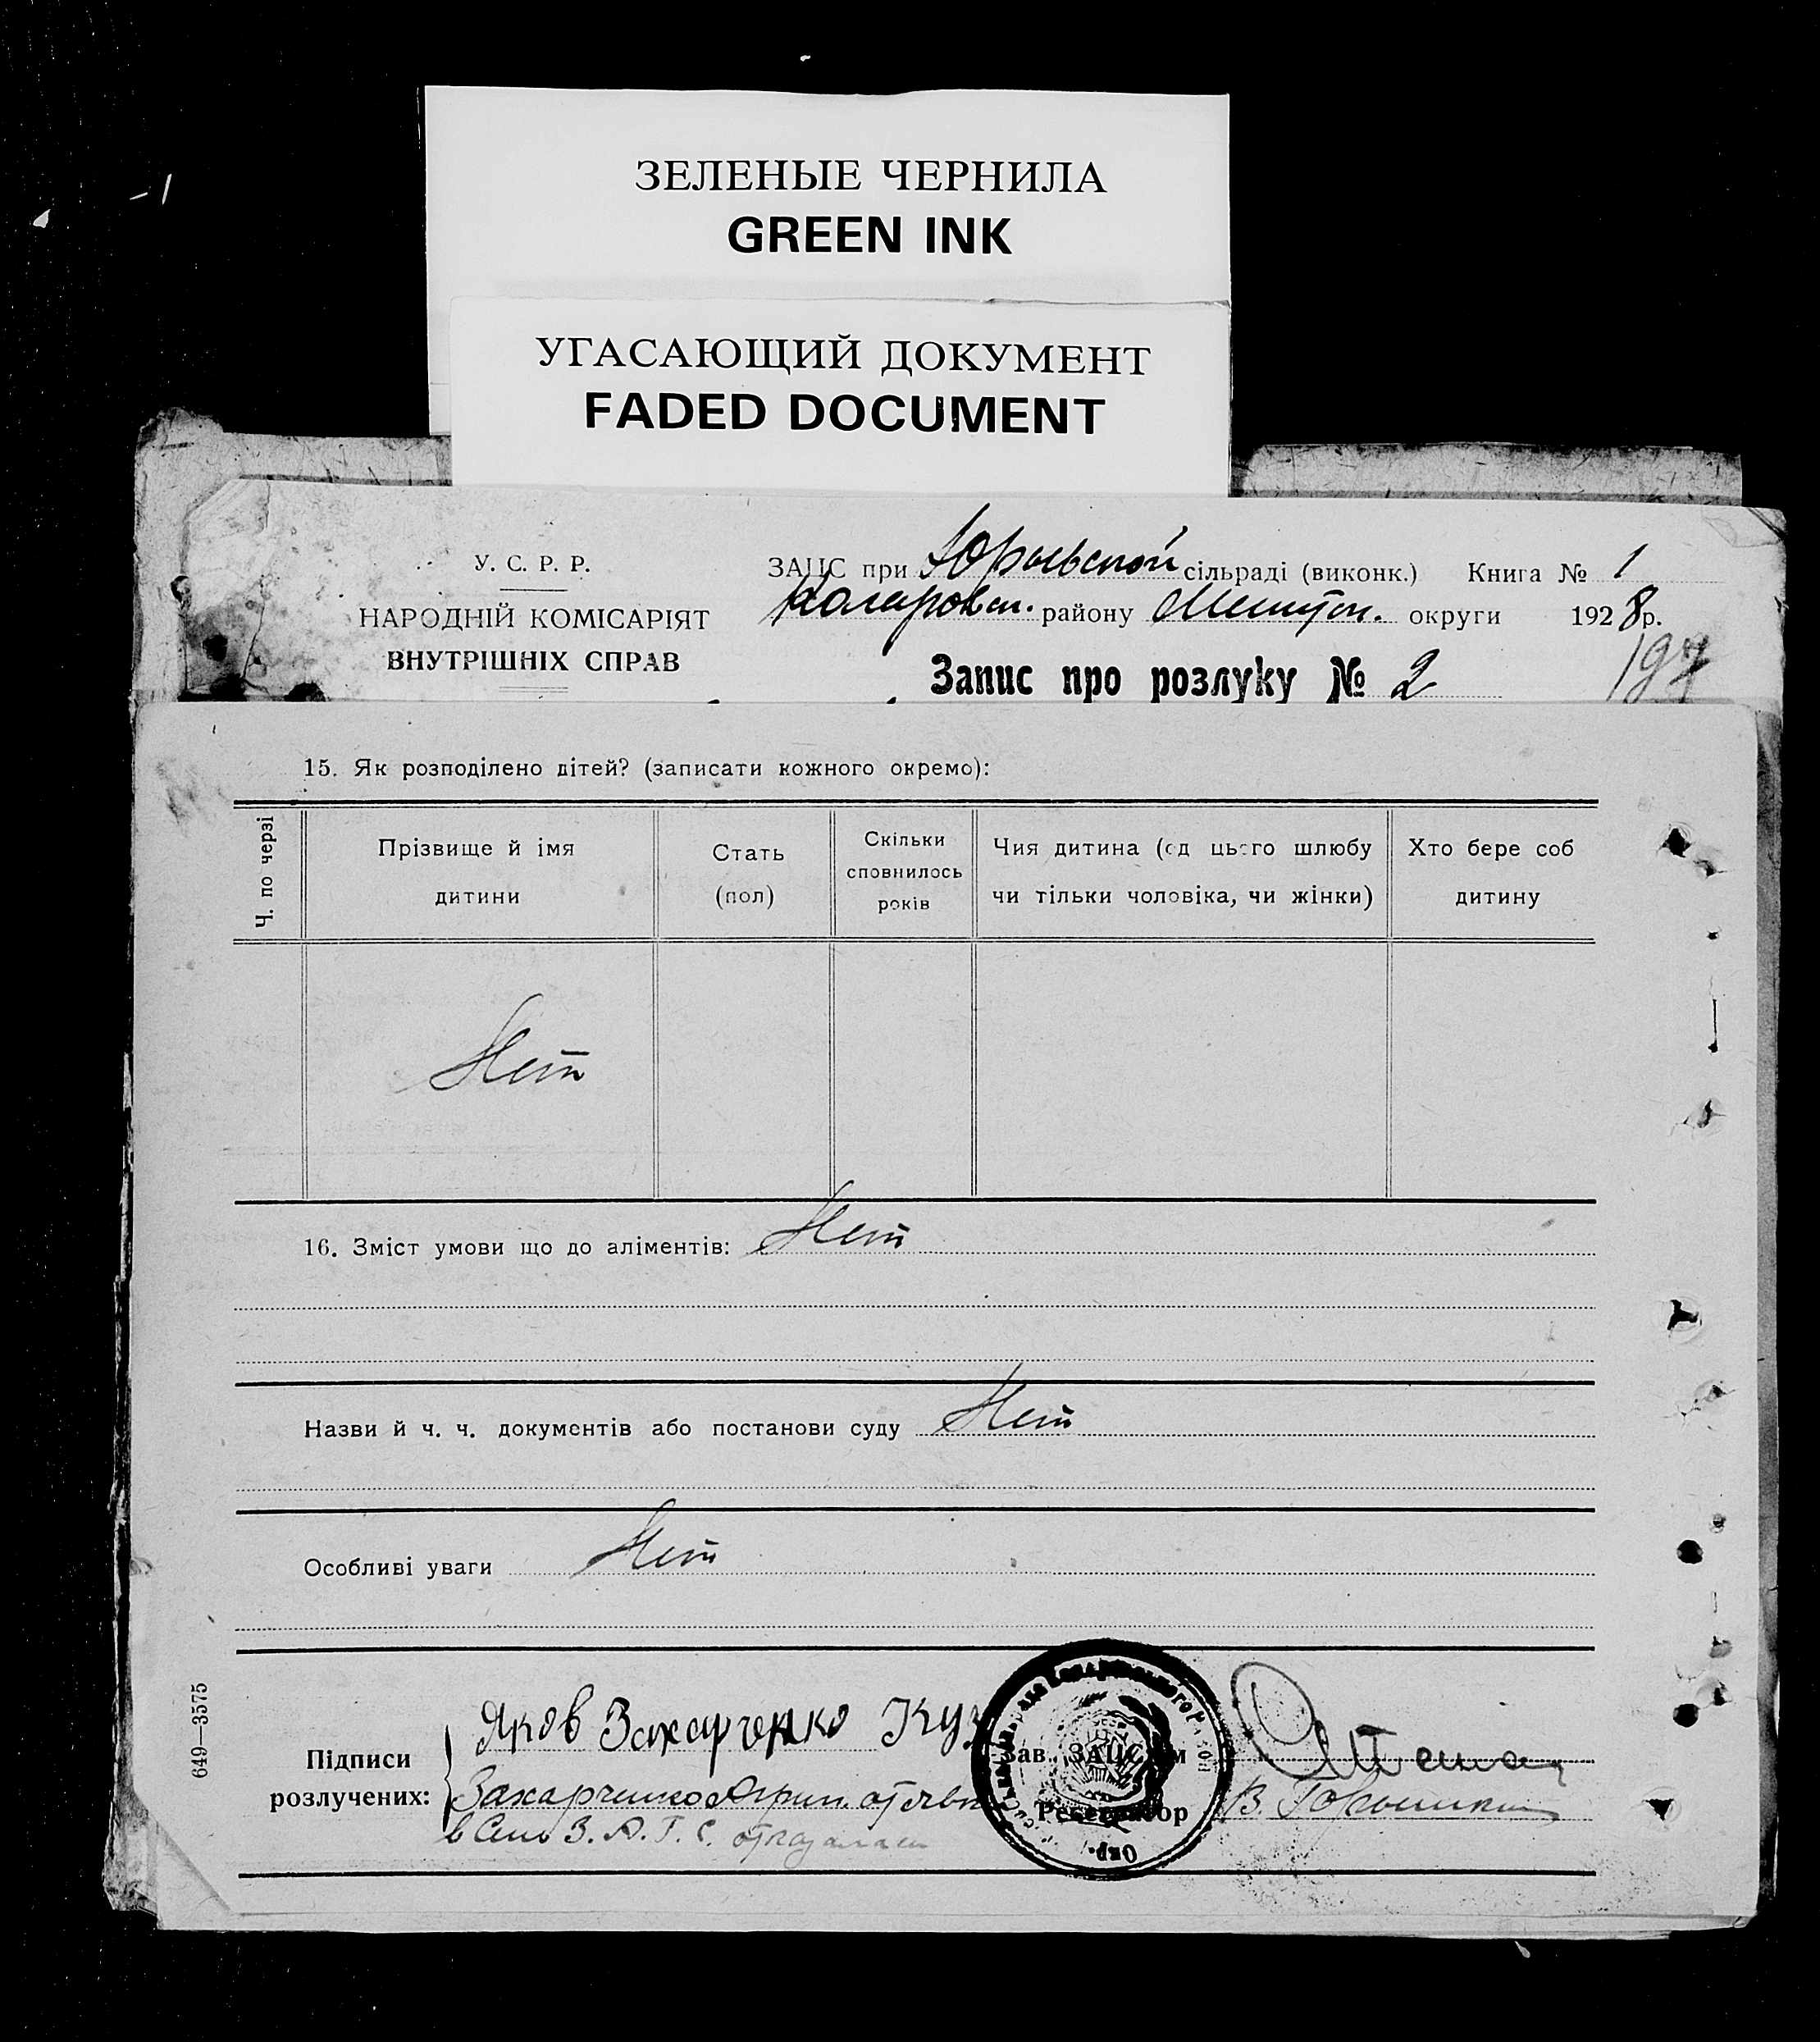 ЗЕЛЕНЫЕ ЧЕРНИЛА
GREEN INK
УГАСАЮЩИЙ ДОКУМЕНТ
FADED DOCUMENT
У. С. Р. Р.
НАРОДНІЙ КОМІСАРІЯТ
ВНУТРІШНІХ СПРАВ
ЗАЦС при Юрьевской сільраді (виконк.) Книга № 1
Коларовск. району Мелитоп. округи 1928р.
Запис про розлуку № 2
197
15. Як розподілено дітей? (записати кожного окремо):
Ч. по черзі
Прізвище й імя
дитини
Стать
(пол)
Скільки
сповнилось
років
Чия дитина (од цього шлюбу
чи тільки чоловіка, чи жінки)
Хто бере соб
дитину
Нет
16. Зміст умови що до аліментів: Нет
Назви й ч. ч. документів або постанови суду Нет
Особливі уваги Нет
649—3575
Підписи
розлучених:
Яков Захарченко
Захарченко
в З. А. Г. С. отказалась
Зав. ЗАЦС'ом
Реєстратор
Окр.